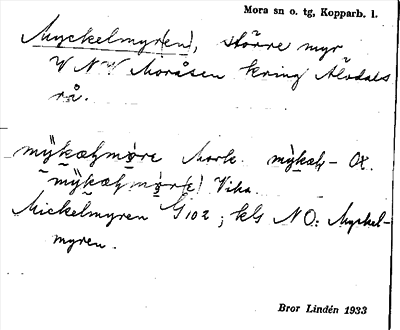 Mora sn o. tg, Kopparb. l.
Myckelmyr(en), större myr
V N V Moråsen kring Älvdals
rå.
Mork. – Ox.
Vika.
Mickelmyren G 102; kls NO: Myckel-
myren.
Bror Lindén 1933